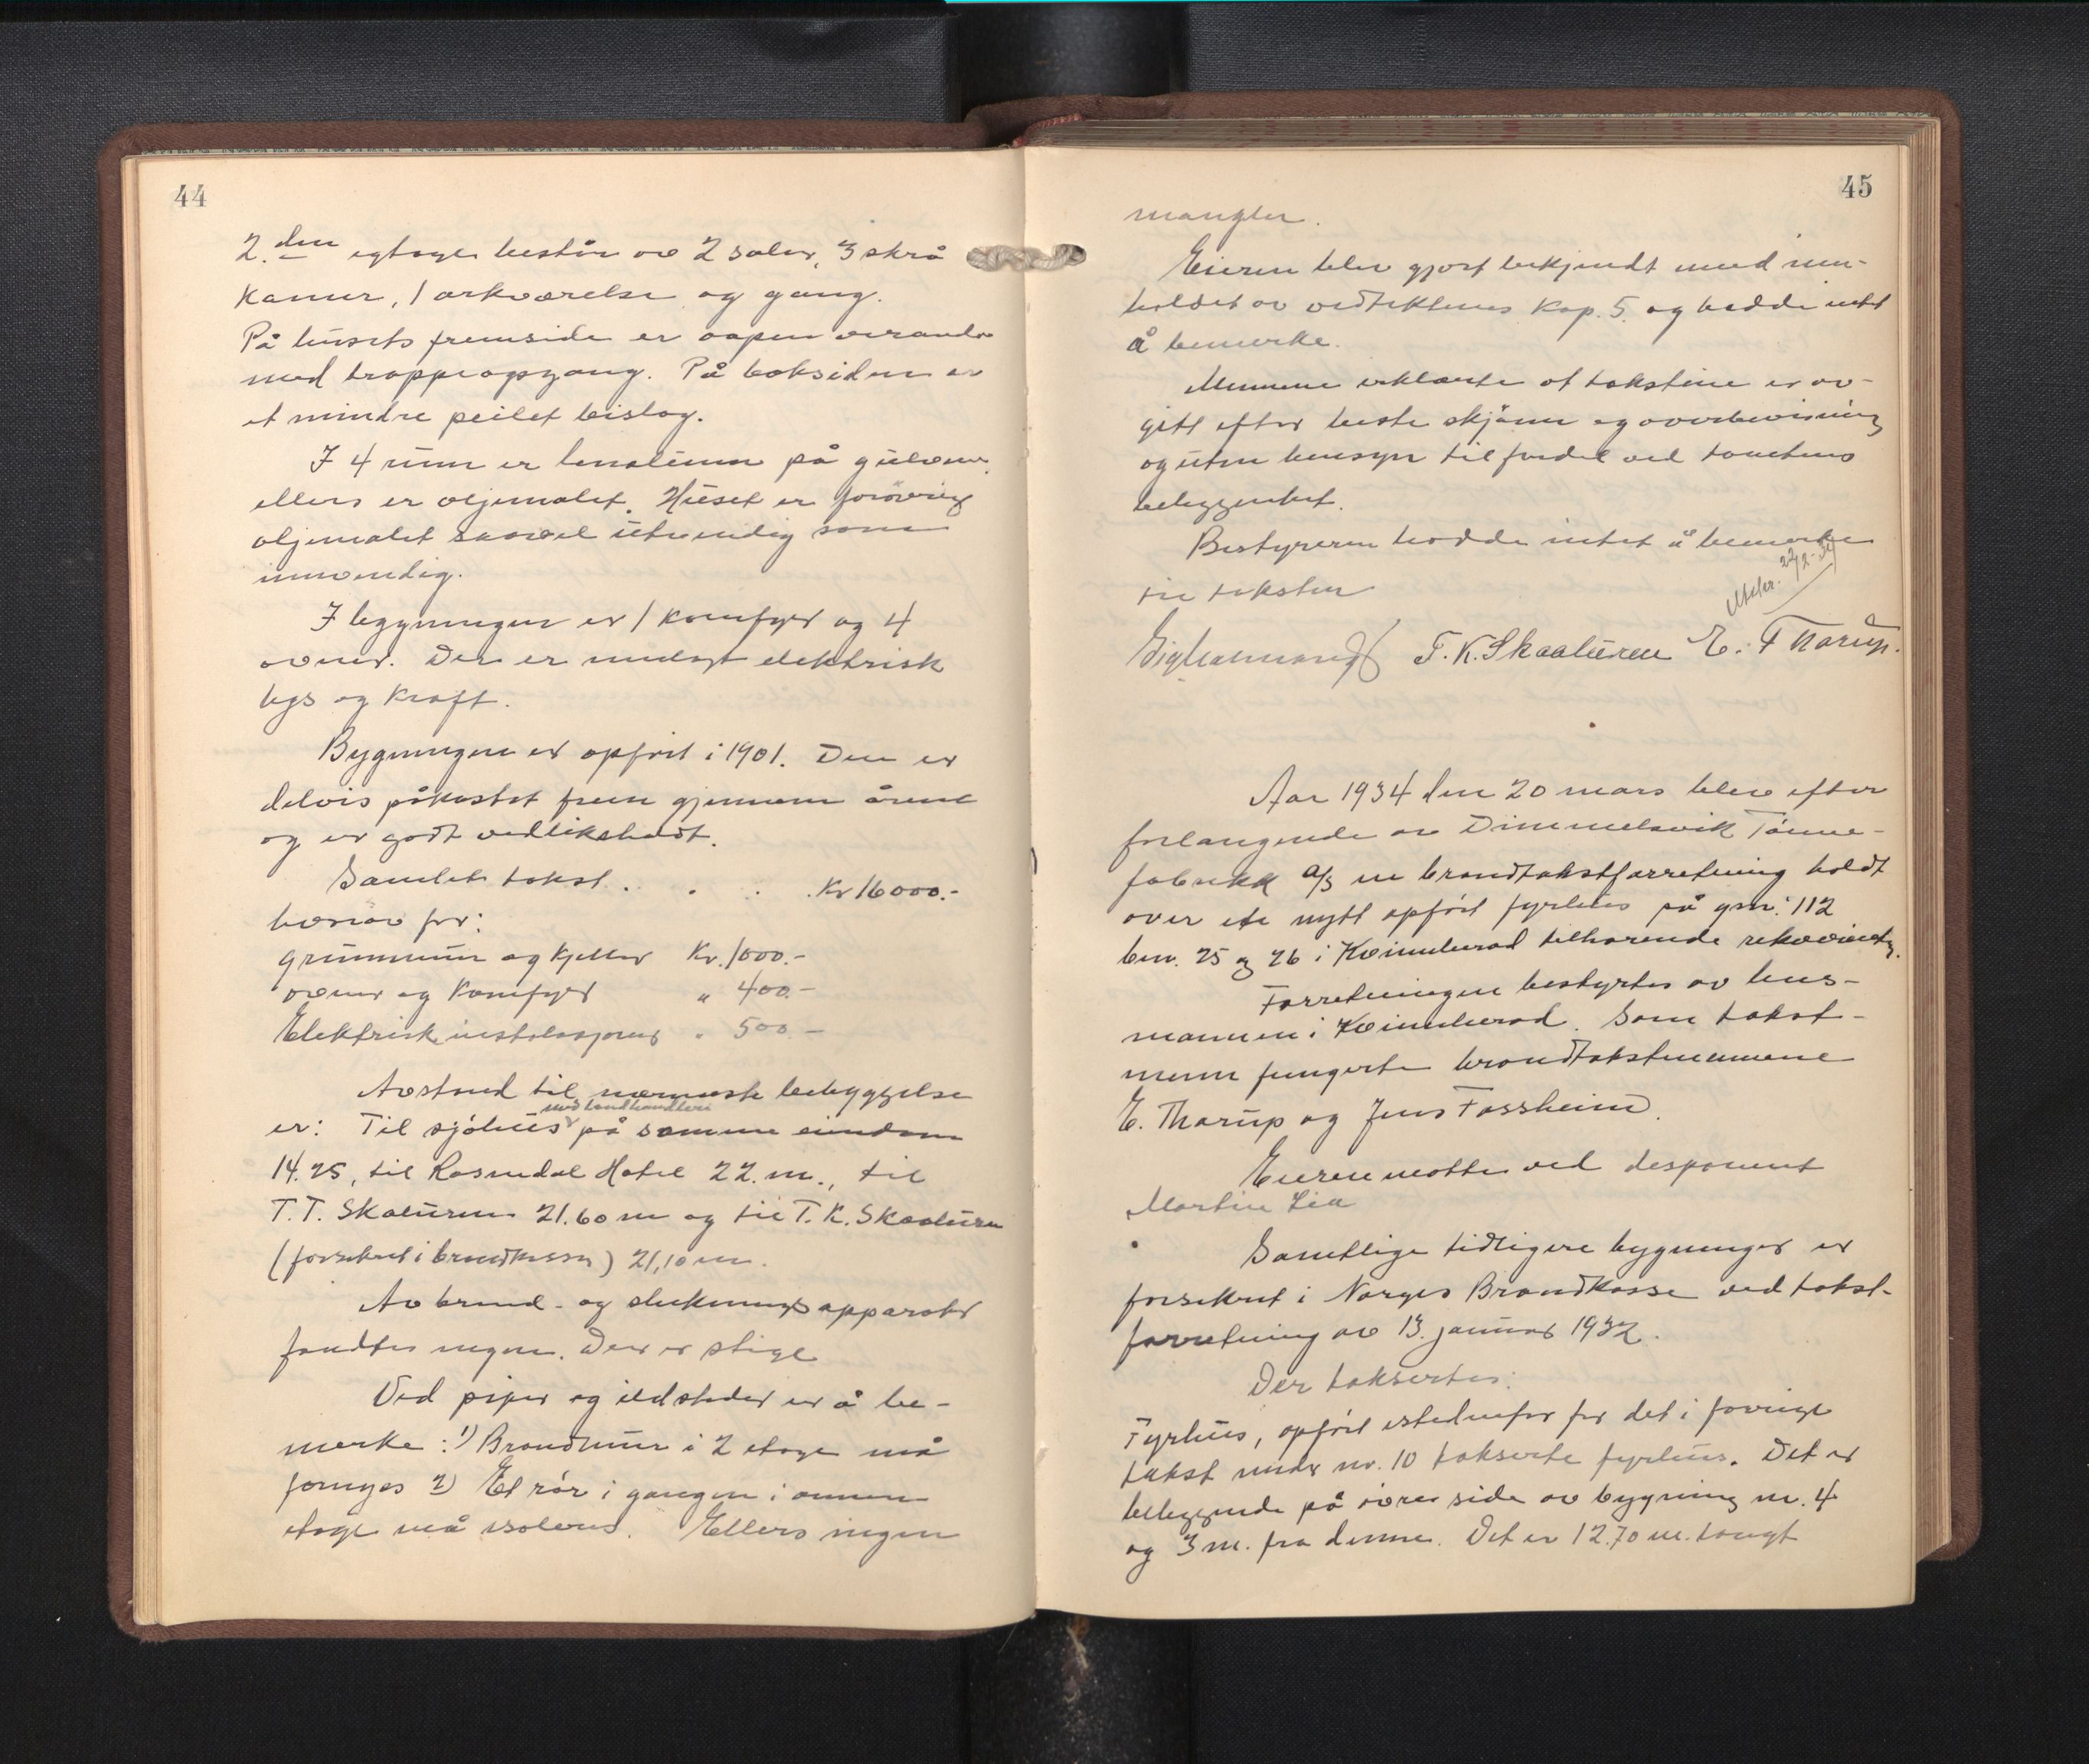 44
2. den egtage består av 2 saler, 3 skrå
kamer, 1 arkværelse og gang.
På husets fremside er aapen veranda
med trappeopgang. På baksiden er
et mindre peilet bislag.
I 4 rum er linoleum på gulvene
ellers er oljemalet. Huset er forøvrig
oljemalet saavel utvendig som
innvendig.
I bygningen er 1 komfyr og 4
ovner. Der er innlagt elektrisk
lys og kraft.
Bygningen er opført i 1901. Den er
delvis påkostet frem gjennem årene
og er godt vedlikeholdt.
Samlet takst . . . . Kr 16000.-
herav for:
grunnmur og kjeller Kr. 1000.-
ovner og komfyr " 400.-
Elektrisk installasjoner " 500.-
Avstand til nærmeste bebyggelse
med landhandleri
er: Til sjøhus på samme eiendom
14.25, til Rosendal Hotel 22. m., til
T. T. Skaaluren 21.60 m og til T. K. Skaaluren
(forsikret i brandkassen) 21,10 m.
Av brand- og slukningsapparater
fandtes ingen. Der er stige
Ved piper og ildsteder er å be-
merke: 1) Brandmur i 2 etage må
fornyes 2) Et rør i gangen i annen
etage må isoleres. Ellers ingen
45
mangler.
Eieren blev gjort bekjendt med inn-
holdet av vedtektenes Kap. 5. og hadde intet
å bemerke.
Mennene erklærte at takstene er av-
gitt efter beste skjønn og overbevisning
og uten hensyn til fordel ved tomtens
beliggenhet.
Bestyreren hadde intet å bemerke
til taksten
Utskr. 22/2-34
T. K. Skaaluren E. Tharup.
Aar 1934 den 20 mars blev efter
forlangende av Dimmelsvik Tønne-
fabrikk A/S en brandtakstforretning holdt
over ete nytt opført fyrhus på gnr. 112
bnr. 25 og 26 i Kvinnherad tilhørende rekvirenten.
Forretningen bestyrtes av lens-
mannen i Kvinnherad. Som takst-
menn fungerte brandtakstmennene
E. Tharup og Jens Fossheim.
Eieren møtte ved disponent
Martin Lea
Samtlige tidligere bygninger er
forsikret i Norges Brandkasse ved takst-
forretning av 13. januar 1932.
Der taksertes:
Fyrhus, opført istedenfor for det i forrige
takst under nr. 10 takserte fyrhus. Det er
beliggende på øvre side av bygning nr. 4
og 3 m. fra denne. Det er 12.70 m. langt